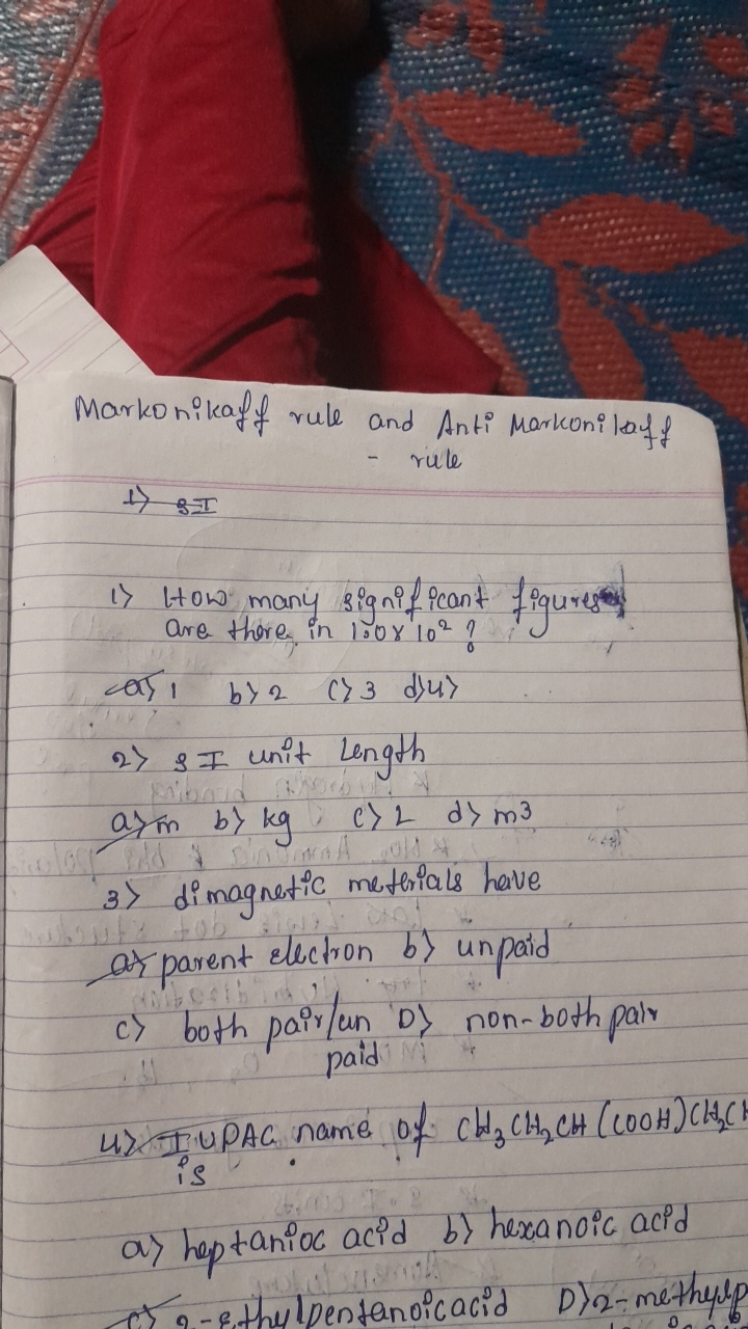 Markonikaff rule and Anti Markonikaff
- rule
1) SI
1) How many significant figures
are there in 1.0 x 10² ?
a) 1 b) 2 c) 3 d) 4)
2) SI unit Length
a) m b) kg c) L d) m3
3) dimagnetic meterials have
a) parent electron b) unpaid
c) both pair/un D) non-both pair
paid
4) IUPAC name of CH₃CH₂CH(COOH)CH₂CH
is
a) heptanioc acid b) hexanoic acid
c) 2-Ethylpentanoic acid D) 2-methylp